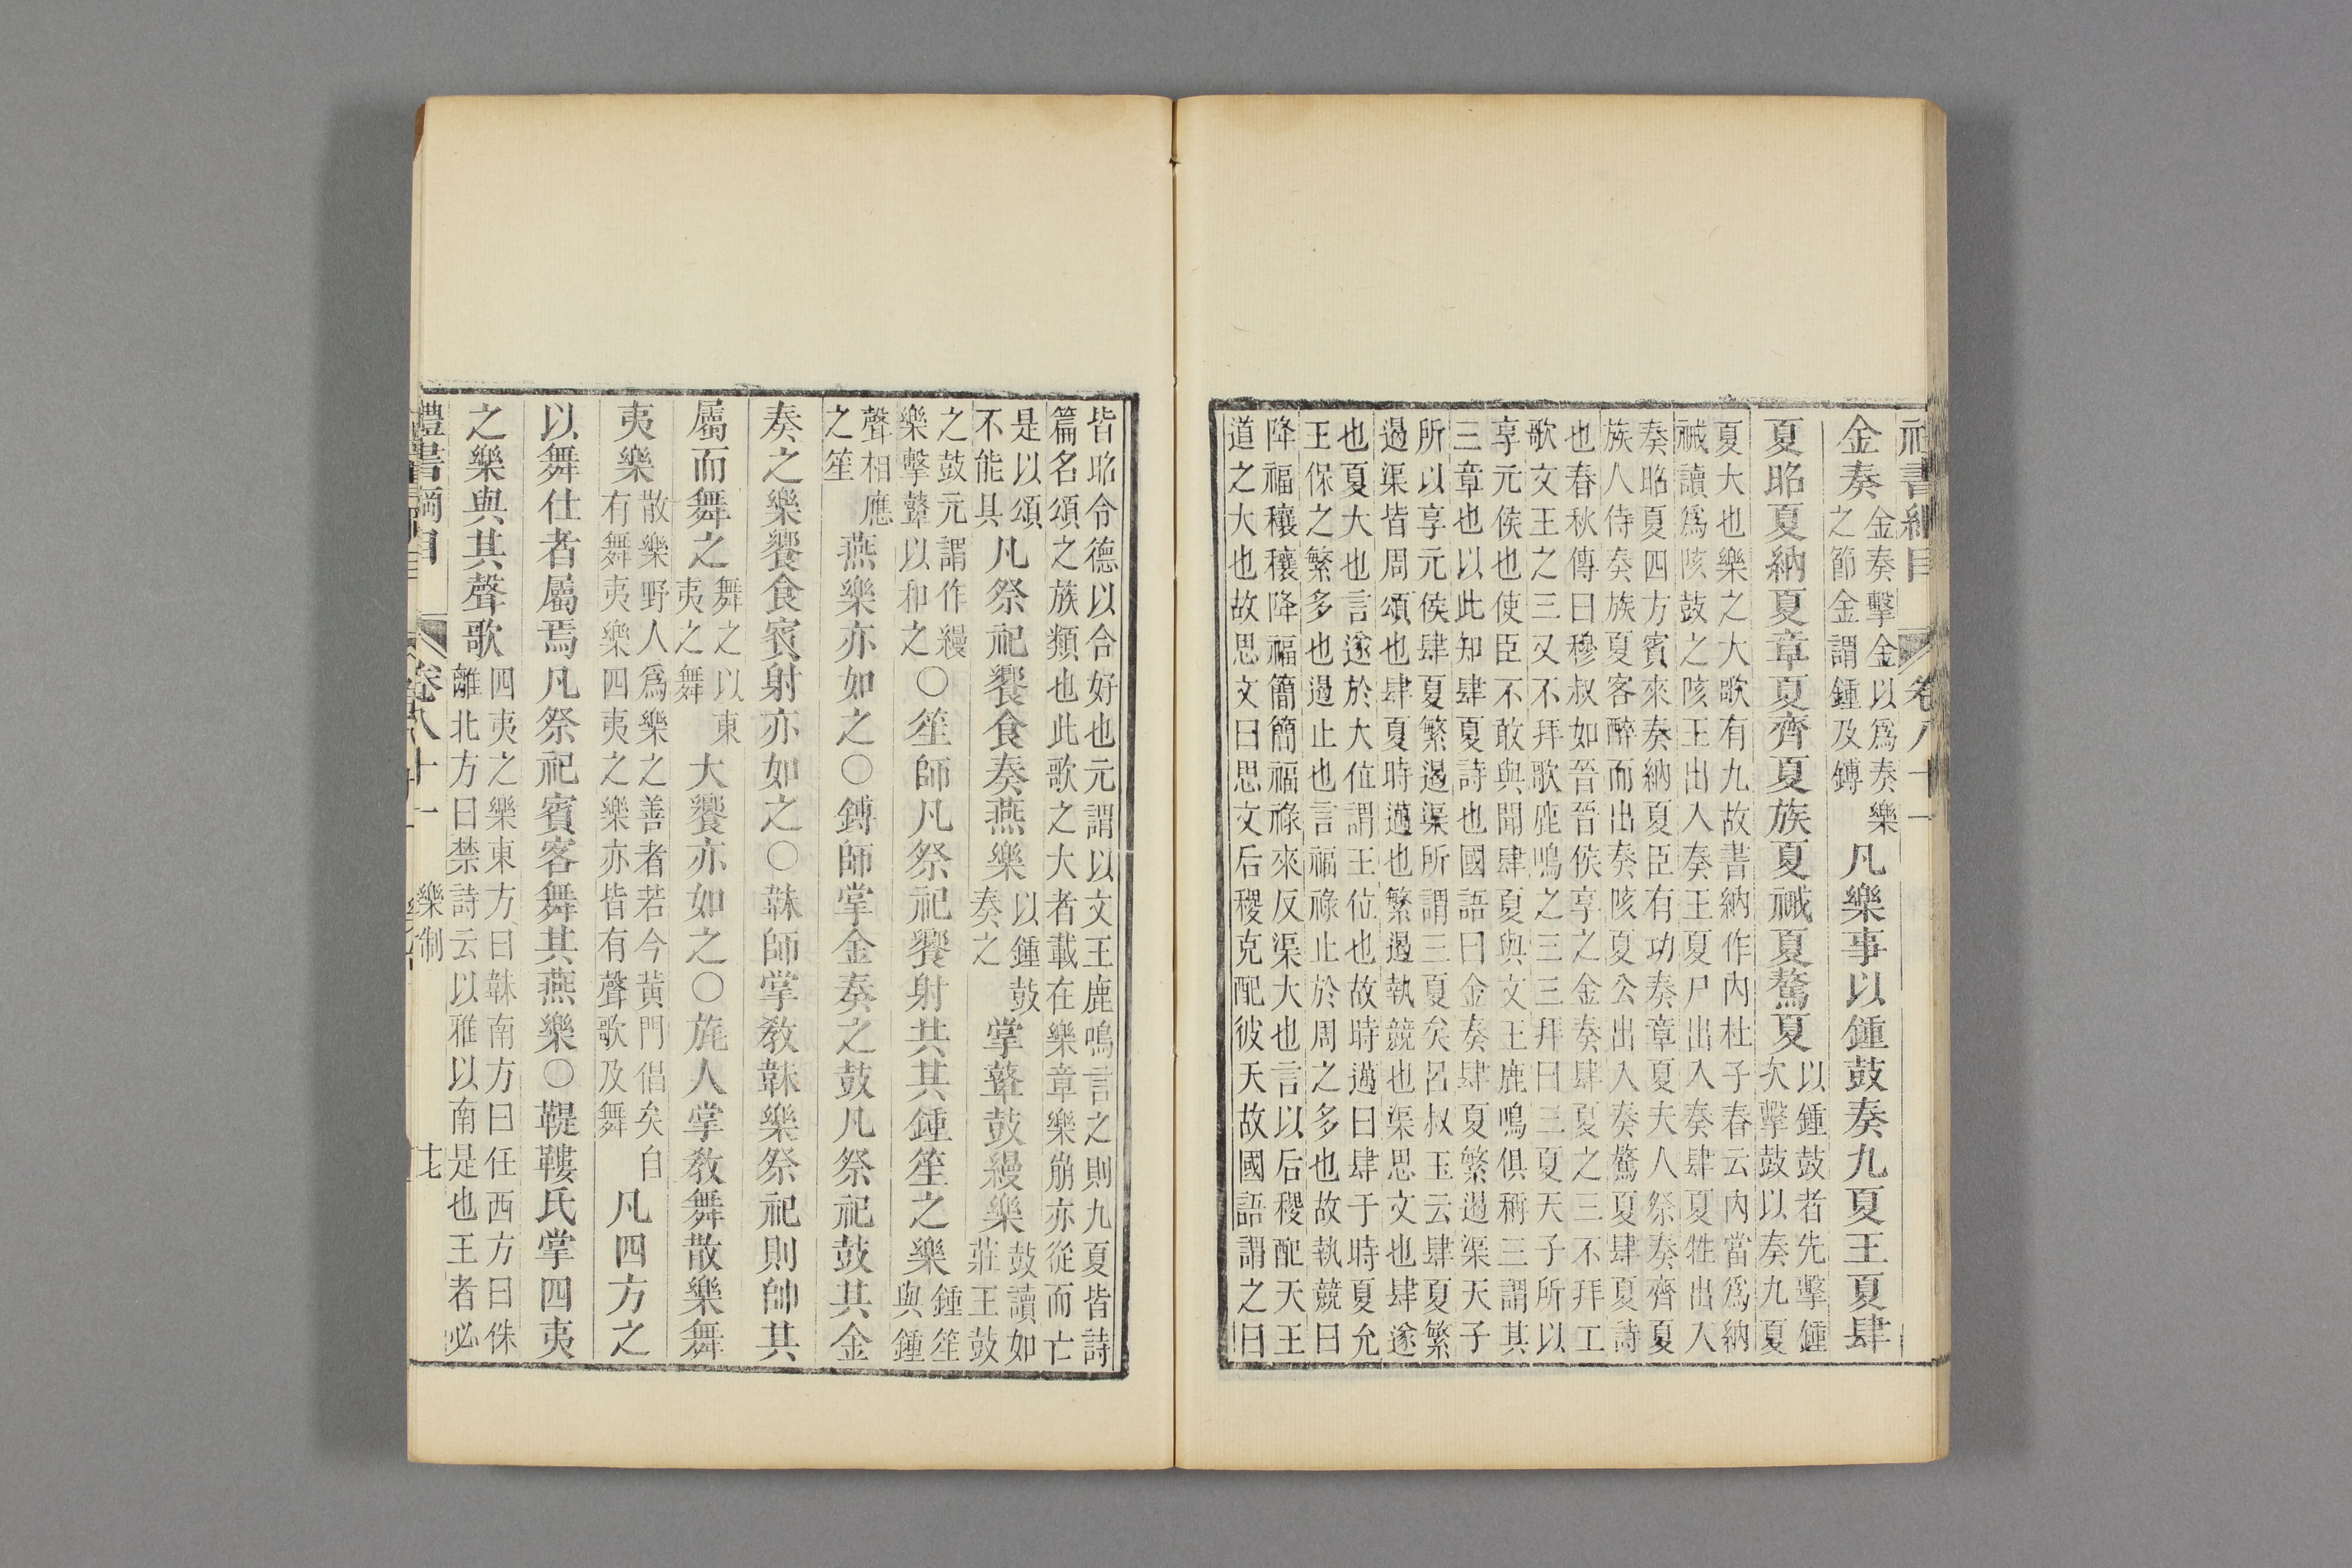 書綱目 卷八十一
金奏
金奏擊金以爲奏樂
之節金謂鍾及鎛
凡樂事以鍾鼓奏九夏王夏肆
夏昭夏納夏章夏齊夏族夏祴夏驁夏
以鍾鼓者先擊鍾
次擊鼓以奏九夏
夏大也樂之大歌有九故書納作內杜子春云內當爲納
祴讀爲陔鼓之陔王出入奏王夏尸出入奏肆夏牲出入
奏昭夏四方賓來奏納夏臣有功奏章夏夫人祭奏齊夏
族人侍奏族夏客醉而出奏陔夏公出入奏驁夏肆夏詩
也春秋傳曰穆叔如晉晉侯享之金奏肆夏之三不拜工
歌文王之三又不拜歌鹿鳴之三三拜曰三夏天子所以
享元侯也使臣不敢與聞肆夏與文王鹿鳴俱稱三謂其
三章也以此知肆夏詩也國語曰金奏肆夏繁遏渠天子
所以享元侯肆夏繁遏渠所謂三夏矣呂叔玉云肆夏繁
遏渠皆周頌也肆夏時邁也繁遏執競也渠思文也肆遂
也夏大也言遂於大位謂王位也故時邁曰肆于時夏允
王保之繁多也遏止也言福祿止於周之多也故執競曰
降福穰穰降福簡簡福祿來反渠大也言以后稷配天王
道之大也故思文曰思文后稷克配彼天故國語謂之曰
皆昭令德以合好也元謂以文王鹿鳴言之則九夏皆詩
篇名頌之族類也此歌之大者載在樂章樂崩亦從而亡
是以頌
不能具
凡祭祀饗食奏燕樂
以鍾鼓
奏之
掌鼙鼓縵樂
鼓讀如
莊王鼓
之鼓元謂作縵
樂擊鼙以和之
○笙師凡祭祀饗射共其鍾笙之樂
鍾笙
與鍾
聲相應
之笙
燕樂亦如之○鎛師掌金奏之鼓凡祭祀鼓其金
奏之樂饗食賓射亦如之○韎師掌敎韎樂祭祀則帥其
屬而舞之
舞之以東
夷之舞
大饗亦如之○旄人掌敎舞散樂舞
夷樂
散樂野人爲樂之善者若今黃門倡矣自
有舞夷樂四夷之樂亦皆有聲歌及舞
凡四方之
以舞仕者屬焉凡祭祀賓客舞其燕樂○鞮鞻氏掌四夷
之樂與其聲歌
四夷之樂東方曰韎南方曰任西方曰侏
離北方曰禁詩云以雅以南是也王者必
禮書綱目 卷八十一 樂制